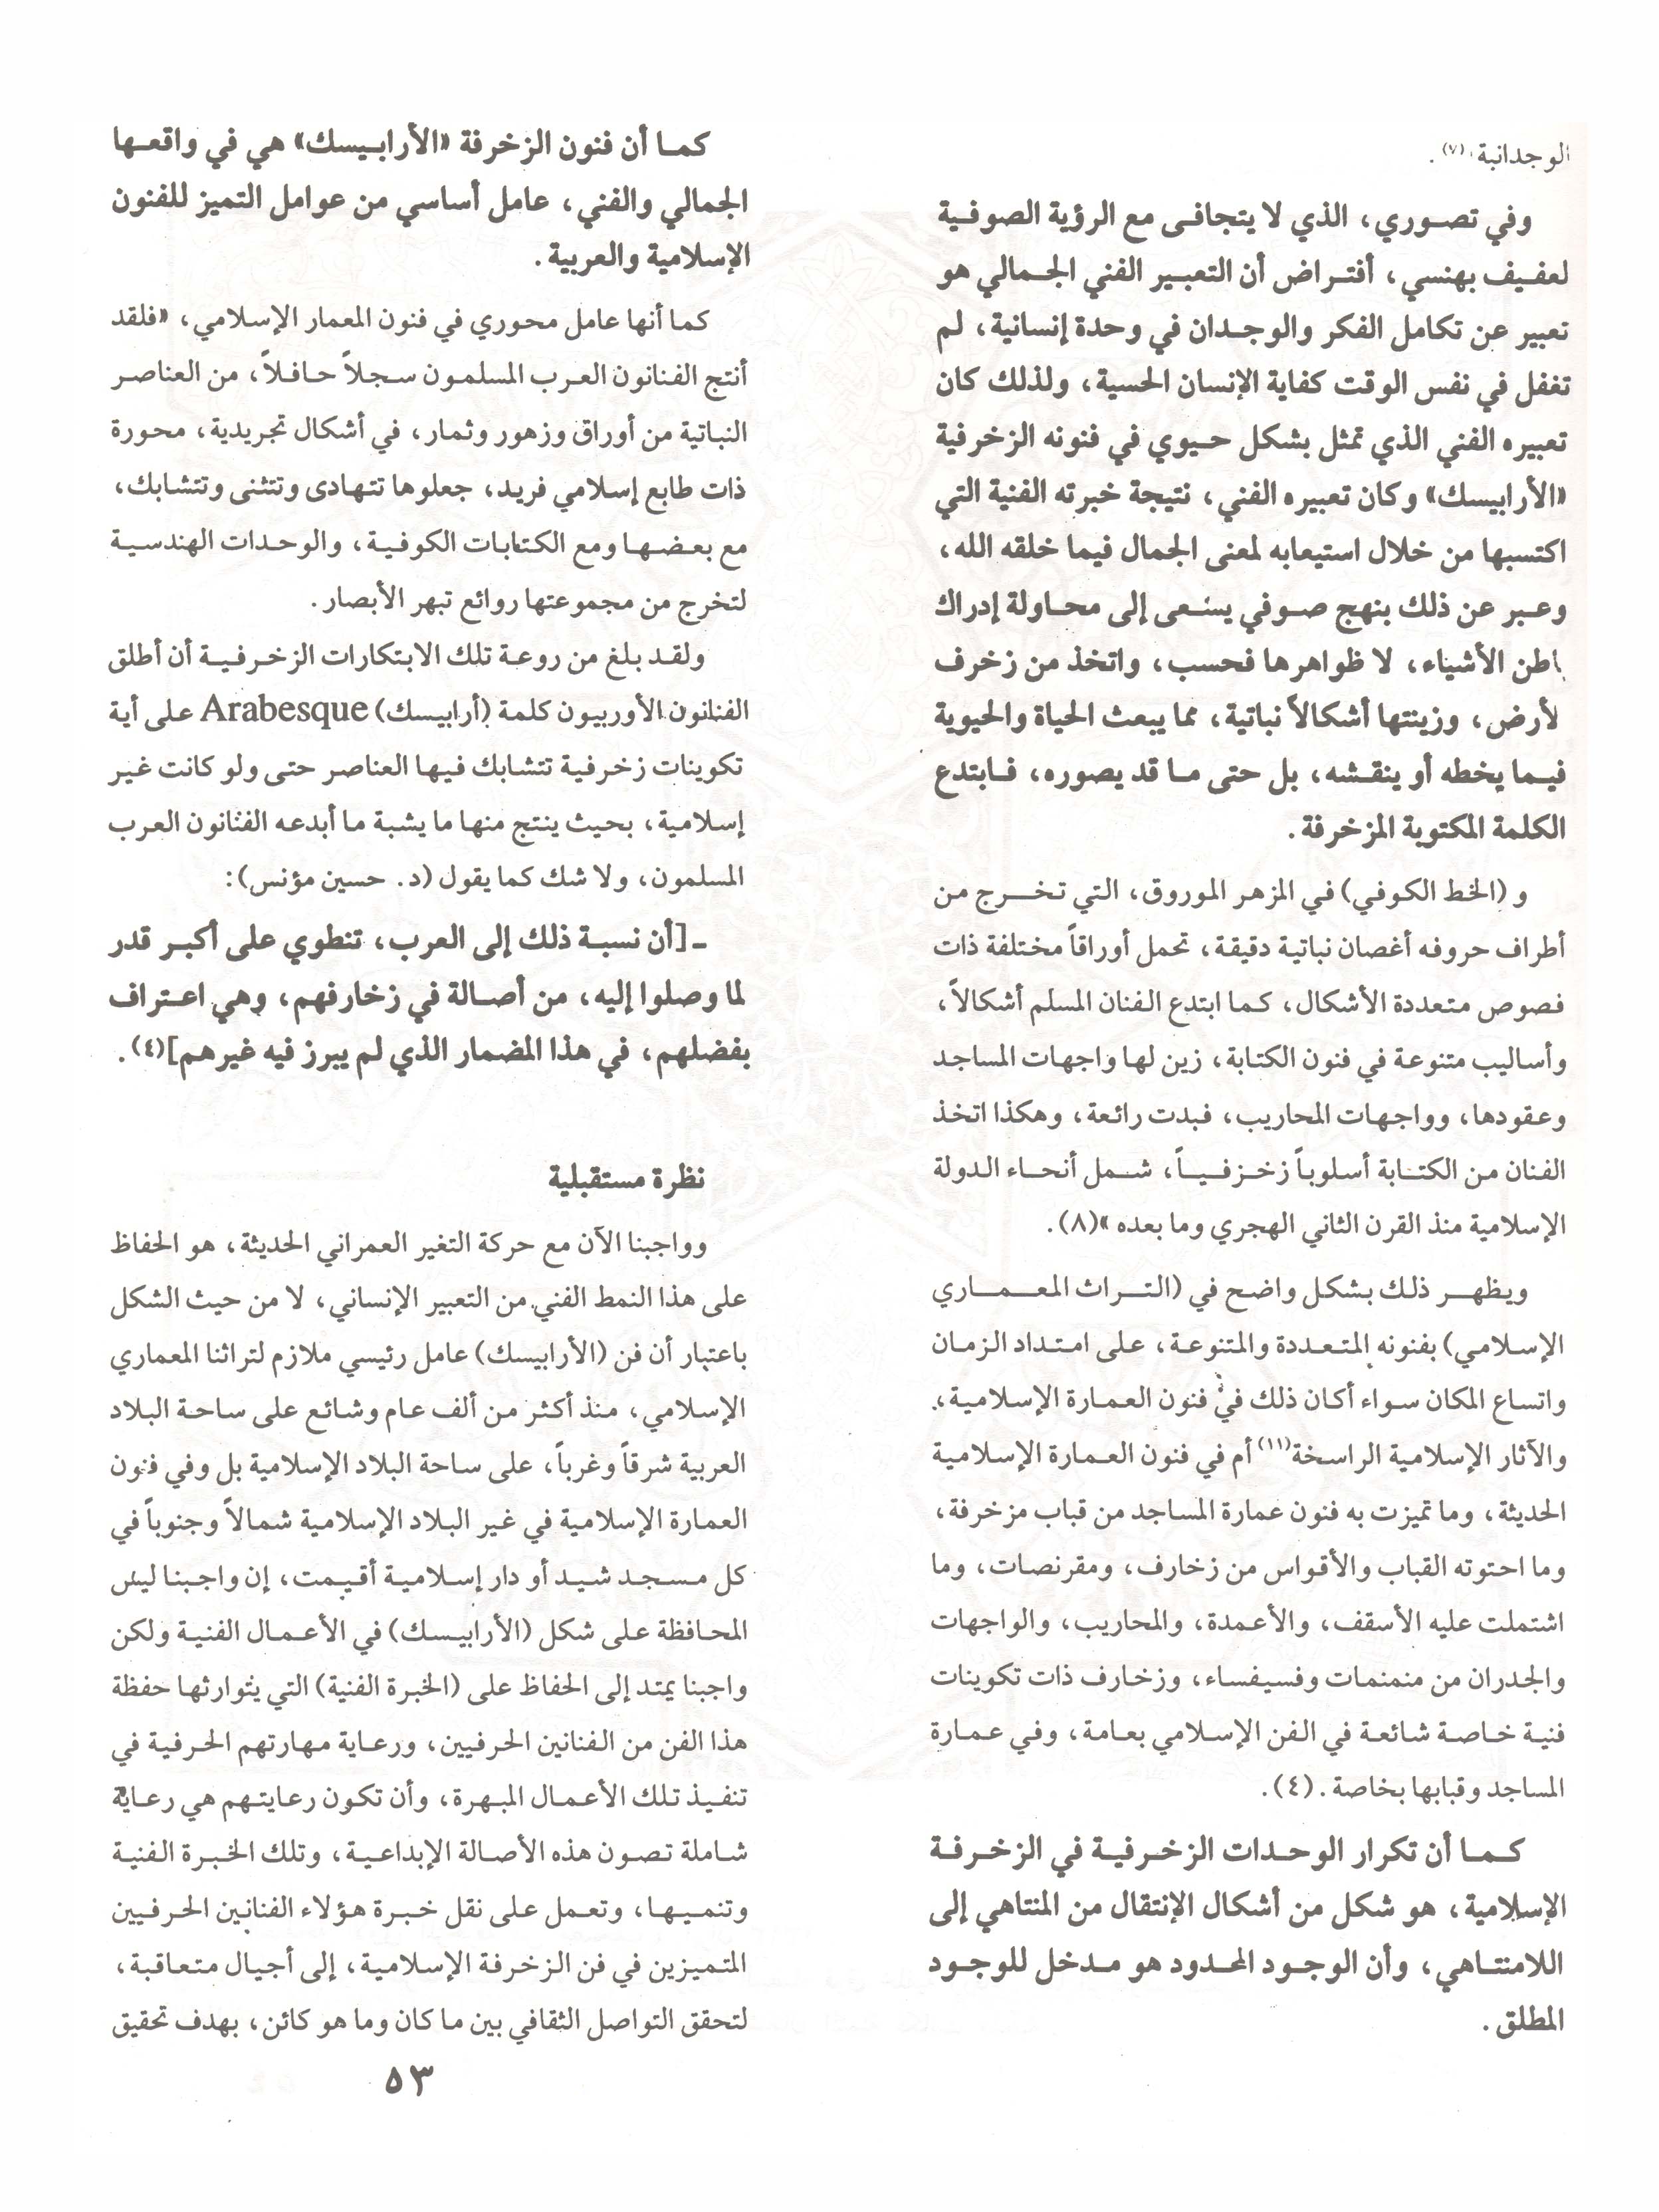 الوجدانية،(٧).
وفي تصوري، الذي لا يتجافى مع الرؤية الصوفية
لعفيف بهنسي، أفتراض أن التعبير الفني الجمالي هو
تعبير عن تكامل الفكر والوجدان في وحدة إنسانية، لم
تغفل في نفس الوقت كفاية الإنسان الحسية، ولذلك كان
تعبيره الفني الذي تمثل بشكل حيوي في فنونه الزخرفية
«الأرابيسك» وكان تعبيره الفني، نتيجة خبرته الفنية التي
اكتسبها من خلال استيعابه لمعنى الجمال فيما خلقه الله،
وعبر عن ذلك بنهج صوفي يسعى إلى محاولة إدراك
باطن الأشياء، لا ظواهرها فحسب، واتخذ من زخرف
لأرض، وزينتها أشكالاً نباتية، مما يبعث الحياة والحيوية
فيما يخطه أو ينقشه، بل حتى ما قد يصوره، فابتدع
الكلمة المكتوبة المزخرفة.
و (الخط الكوفي) في المزهر الموروق، التي تخرج من
أطراف حروفه أغصان نباتية دقيقة، تحمل أوراقاً مختلفة ذات
فصوص متعددة الأشكال، كما ابتدع الفنان المسلم أشكالاً،
وأساليب متنوعة في فنون الكتابة، زين لها واجهات المساجد
وعقودها، وواجهات المحاريب، فبدت رائعة، وهكذا اتخذ
الفنان من الكتابة أسلوباً زخزفياً، شمل أنحاء الدولة
الإسلامية منذ القرن الثاني الهجري وما بعده»(٨).
ويظهر ذلك بشكل واضح في (التراث المعماري
الإسلامي) بفنونه المتعددة والمتنوعة، على امتداد الزمان
واتساع المكان سواء أكان ذلك في فنون العمارة الإسلامية،
والآثار الإسلامية الراسخة(١١) أم في فنون العمارة الإسلامية
الحديثة، وما تميزت به فنون عمارة المساجد من قباب مزخرفة،
وما احتوته القباب والأقواس من زخارف، ومقرنصات، وما
اشتملت عليه الأسقف، والأعمدة، والمحاريب، والواجهات
والجدران من منمنمات وفسيفساء، وزخارف ذات تكوينات
فنية خاصة شائعة في الفن الإسلامي بعامة، وفي عمارة
المساجد وقبابها بخاصة. (٤).
كما أن تكرار الوحدات الزخرفية في الزخرفة
الإسلامية، هو شكل من أشكال الإنتقال من المتناهي إلى
اللامنتاهي، وأن الوجود المحدود هو مدخل للوجود
المطلق.
كما أن فنون الزخرفة «الأرابيسك» هي في واقعها
الجمالي والفني، عامل أساسي من عوامل التميز للفنون
الإسلامية والعربية.
كما أنها عامل محوري في فنون المعمار الإسلامي، «فلقد
أنتج الفنانون العرب المسلمون سجلاً حافلاً، من العناصر
النباتية من أوراق وزهور وثمار، في أشكال تجريدية، محورة
ذات طابع إسلامي فريد، جعلوها تتهادى وتتثنى وتتشابك،
مع بعضها ومع الكتابات الكوفية، والوحدات الهندسية
لتخرج من مجموعتها روائع تبهر الأبصار.
ولقد بلغ من روعة تلك الابتكارات الزخرفية أن أطلق
الفنانون الأوربيون كلمة (أرابيسك) Arabesque على أية
تكوينات زخرفية تتشابك فيها العناصر حتى ولو كانت غير
إسلامية، بحيث ينتج منها ما يشبة ما أبدعه الفنانون العرب
المسلمون، ولا شك كما يقول (د. حسين مؤنس):
ـ [أن نسبة ذلك إلى العرب، تنطوي على أكبر قدر
لما وصلوا إليه، من أصالة في زخارفهم، وهي اعتراف
بفضلهم، في هذا المضمار الذي لم يبرز فيه غيرهم](٤).
نظرة مستقبلية
وواجبنا الآن مع حركة التغير العمراني الحديثة، هو الحفاظ
على هذا النمط الفني من التعبير الإنساني، لا من حيث الشكل
باعتبار أن فن (الأرابيسك) عامل رئيسي ملازم لتراثنا المعماري
الإسلامي، منذ أكثر من ألف عام وشائع على ساحة البلاد
العربية شرقاً وغرباً، على ساحة البلاد الإسلامية بل وفي فنون
العمارة الإسلامية في غير البلاد الإسلامية شمالاً وجنوباً في
كل مسجد شيد أو دار إسلامية أقيمت، إن واجبنا ليس
المحافظة على شكل (الأرابيسك) في الأعمال الفنية ولكن
واجبنا يمتد إلى الحفاظ على (الخبرة الفنية) التي يتوارثها حفظة
هذا الفن من الفنانين الحرفيين، ورعاية مهارتهم الحرفية في
تنفيذ تلك الأعمال المبهرة، وأن تكون رعايتهم هي رعاية
شاملة تصون هذه الأصالة الإبداعية، وتلك الخبرة الفنية
وتنميها، وتعمل على نقل خبرة هؤلاء الفنانين الحرفيين
المتميزين في فن الزخرفة الإسلامية، إلى أجيال متعاقبة،
لتحقق التواصل الثقافي بين ما كان وما هو كائن، بهدف تحقيق
٥٣